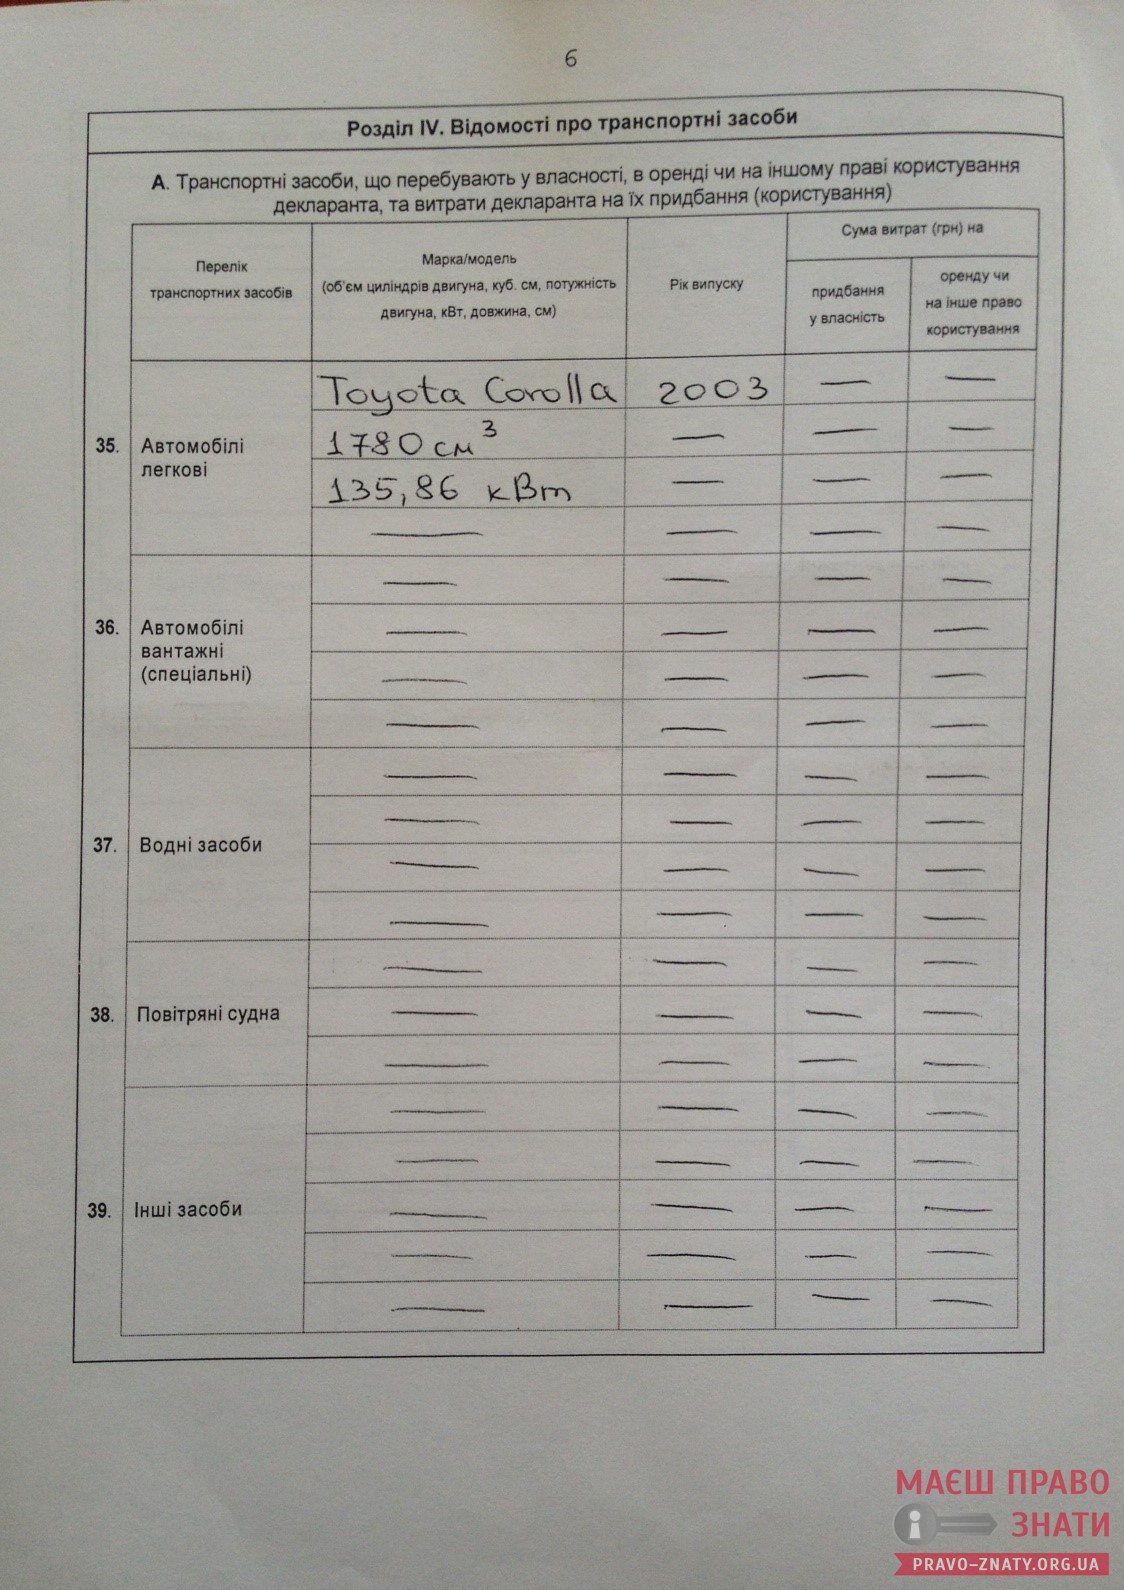 6
Розділ IV. Відомості про транспортні засоби
А. Транспортні засоби, що перебувають у власності, в оренді чи на іншому праві користування
декларанта, та витрати декларанта на їх придбання (користування)
Перелік
транспортних засобів
Марка/модель
(об'єм циліндрів двигуна, куб. см, потужність
двигуна, кВт, довжина, см)
Рік випуску
Сума витрат (грн) на
придбання
у власність
оренду чи
на інше право
користування
35. Автомобілі
легкові
Toyota Corolla 2003 — —
1780 см³ — — —
135,86 кВт — — —
— — — —
36. Автомобілі
вантажні
(спеціальні)
— — — —
— — — —
— — — —
— — — —
37. Водні засоби
— — — —
— — — —
— — — —
— — — —
38. Повітряні судна
— — — —
— — — —
— — — —
39. Інші засоби
— — — —
— — — —
— — — —
— — — —
— — — —
МАЄШ ПРАВО
ЗНАТИ
PRAVO-ZNATY.ORG.UA